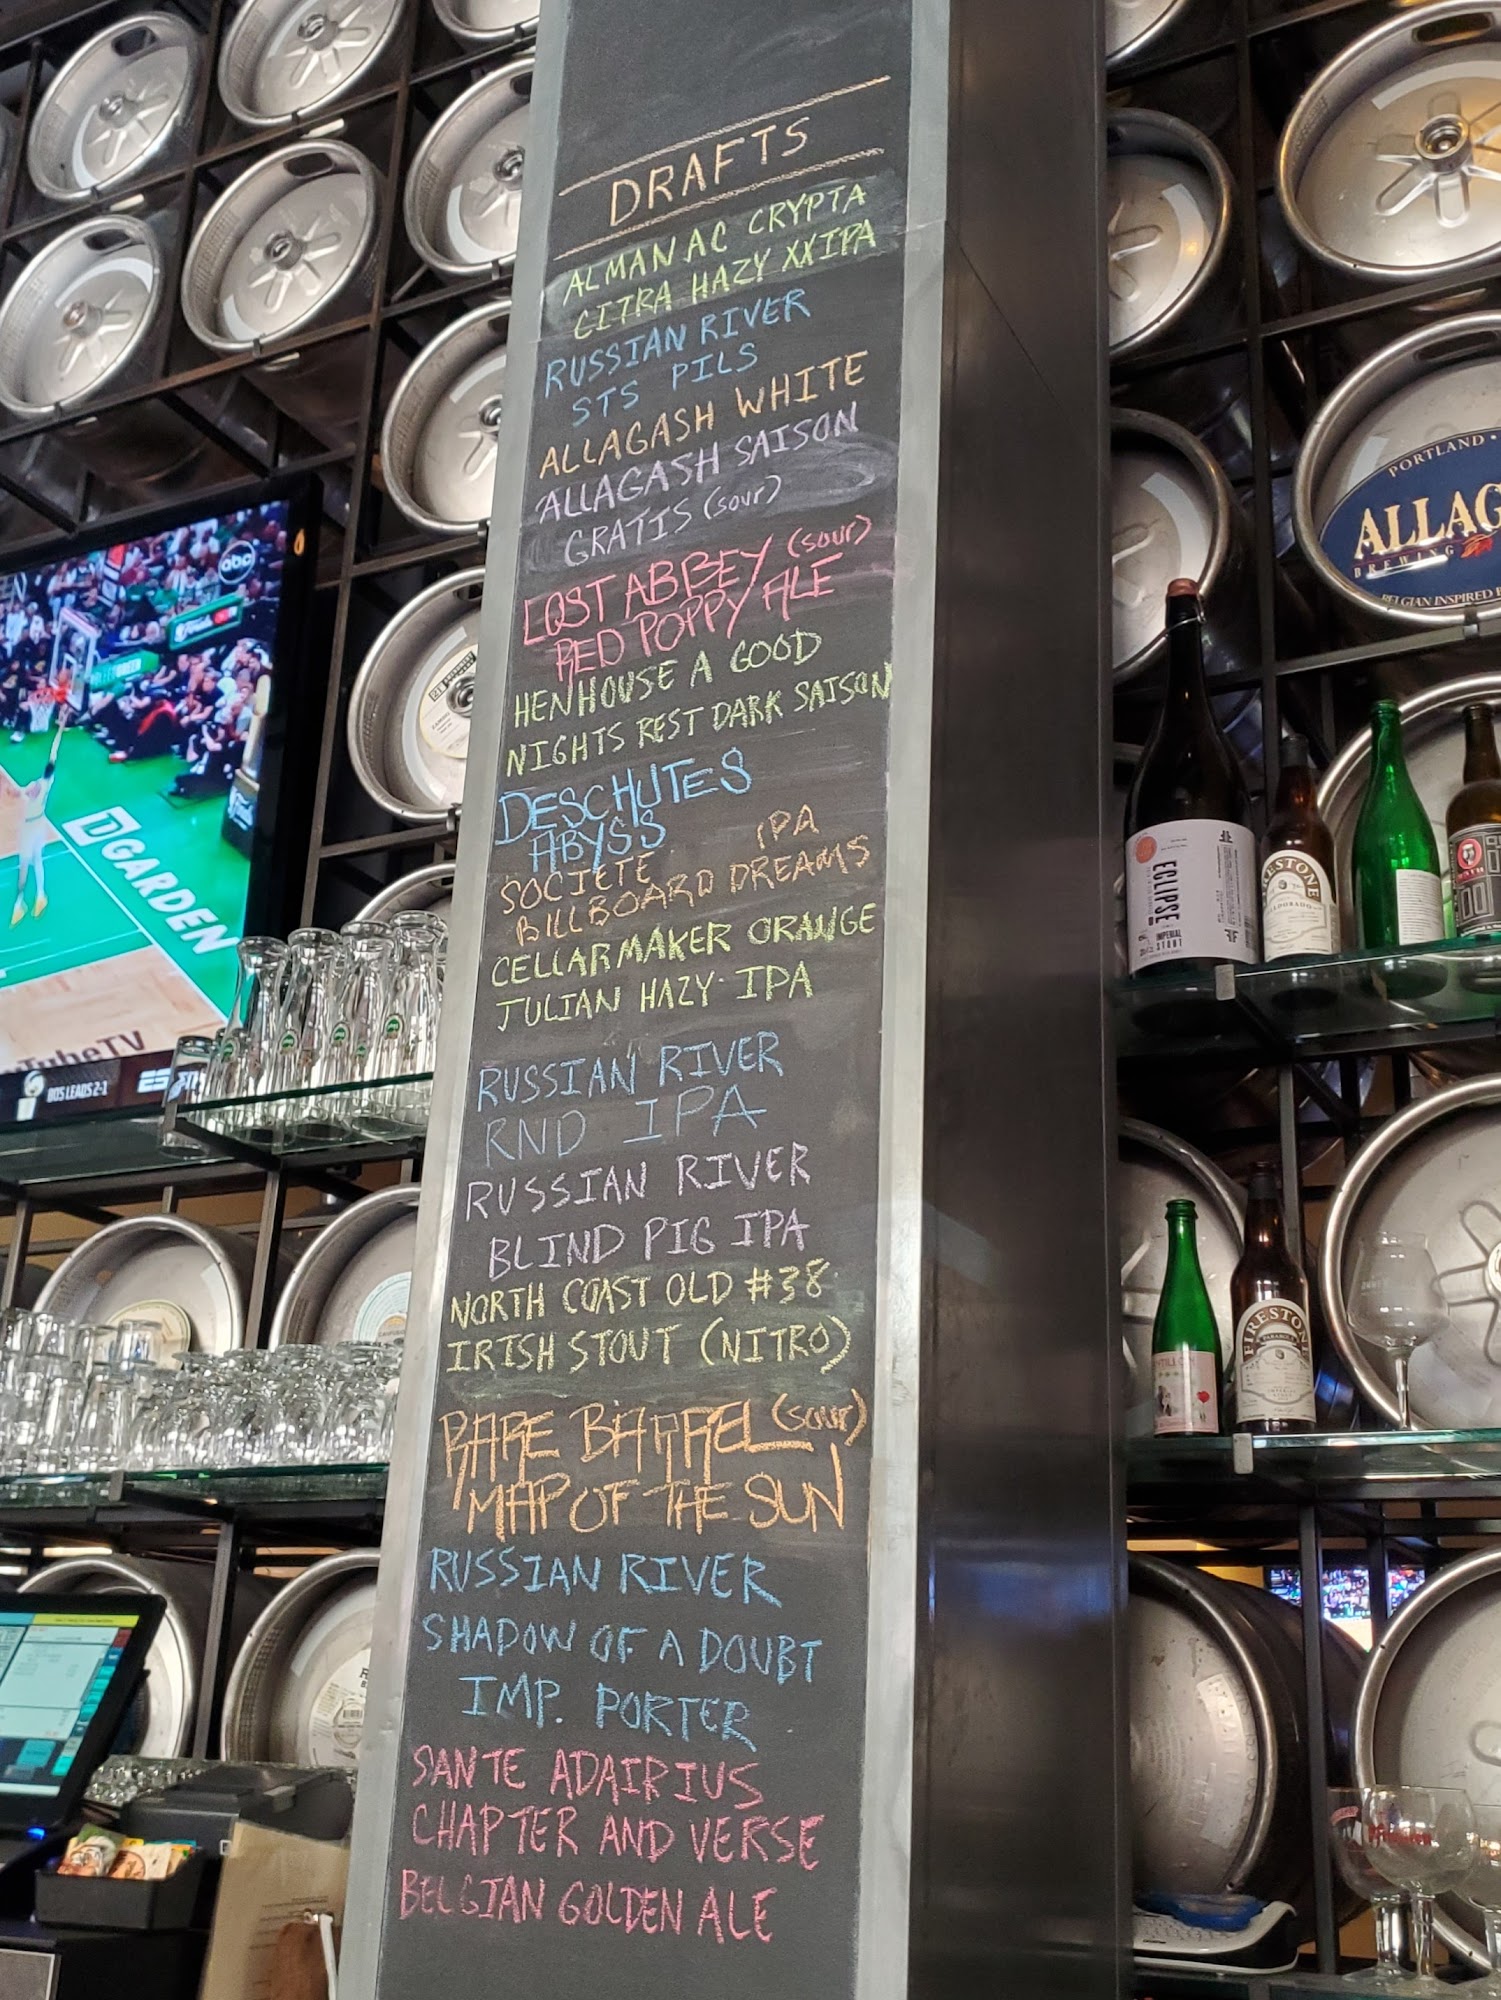 DRAFTS
ALMANAC CRYPTA
CITRA HAZY XXIPA
RUSSIAN RIVER
STS PILS
ALLAGASH WHITE
ALLAGASH SAISON
GRATIS (sour)
LOST ABBEY (sour)
RED POPPY ALE
HENHOUSE A GOOD
NIGHTS REST DARK SAISON
DESCHUTES
ABYSS
SOCIETE IPA
BILLBOARD DREAMS
CELLARMAKER ORANGE
JULIAN HAZY IPA
RUSSIAN RIVER
RND IPA
RUSSIAN RIVER
BLIND PIG IPA
NORTH COAST OLD #38
IRISH STOUT (NITRO)
RARE BARREL (sour)
MAP OF THE SUN
RUSSIAN RIVER
SHADOW OF A DOUBT
IMP. PORTER
SANTE ADAIRIUS
CHAPTER AND VERSE
BELGIAN GOLDEN ALE
abc
GARDEN
TubeTV
BOS LEADS 2-1
PORTLAND
ALLAG
BREWING
ECLIPSE
IMPERIAL
STOUT
FIRESTONE